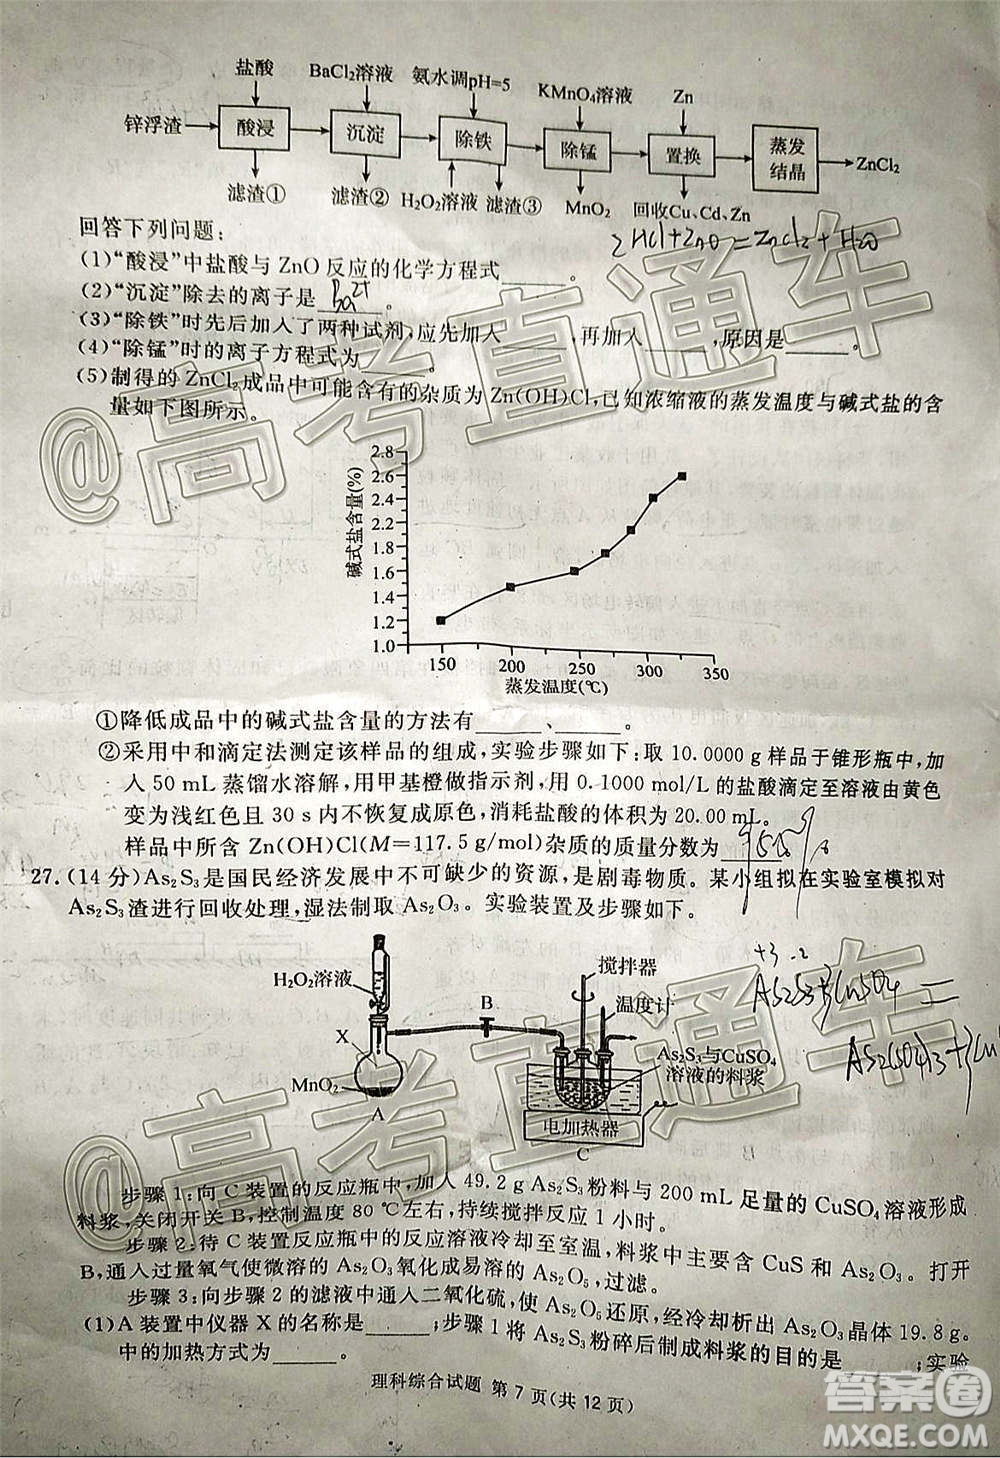 盐酸 BaCl₂溶液 氨水调pH=5 KMnO₄溶液 Zn
锌浮渣 酸浸 沉淀 除铁 除锰 置换 蒸发结晶 ZnCl₂
滤渣① 滤渣② H₂O₂溶液 滤渣③ MnO₂ 回收Cu、Cd、Zn
回答下列问题:
2HCl+ZnO=ZnCl₂+H₂O
(1)“酸浸”中盐酸与ZnO反应的化学方程式______。
(2)“沉淀”除去的离子是 Ba²⁺ 。
(3)“除铁”时先后加入了两种试剂,应先加入______,再加入______,原因是______。
(4)“除锰”时的离子方程式为______。
(5)制得的ZnCl₂成品中可能含有的杂质为Zn(OH)Cl,已知浓缩液的蒸发温度与碱式盐的含
量如下图所示。
碱式盐含量(%)
2.8
2.6
2.4
2.2
2.0
1.8
1.6
1.4
1.2
1.0
150 200 250 300 350
蒸发温度(℃)
①降低成品中的碱式盐含量的方法有______、______。
②采用中和滴定法测定该样品的组成,实验步骤如下:取10.0000 g样品于锥形瓶中,加
入50 mL蒸馏水溶解,用甲基橙做指示剂,用0.1000 mol/L的盐酸滴定至溶液由黄色
变为浅红色且30 s内不恢复成原色,消耗盐酸的体积为20.00 mL。
样品中所含Zn(OH)Cl(M=117.5 g/mol)杂质的质量分数为______
27.(14分)As₂S₃是国民经济发展中不可缺少的资源,是剧毒物质。某小组拟在实验室模拟对
As₂S₃渣进行回收处理,湿法制取As₂O₃。实验装置及步骤如下。
H₂O₂溶液
X
MnO₂
A
B
搅拌器
温度计
As₂S₃与CuSO₄
溶液的料浆
电加热器
C
+3 -2
As₂S₃+3CuSO₄ =
As₂(SO₄)₃+3Cu
步骤1:向C装置的反应瓶中,加入49.2 g As₂S₃粉料与200 mL足量的CuSO₄溶液形成
料浆,关闭开关B,控制温度80 ℃左右,持续搅拌反应1小时。
步骤2:待C装置反应瓶中的反应溶液冷却至室温,料浆中主要含CuS和As₂O₃。打开
B,通入过量氧气使微溶的As₂O₃氧化成易溶的As₂O₅,过滤。
步骤3:向步骤2的滤液中通入二氧化硫,使As₂O₅还原,经冷却析出As₂O₃晶体19.8 g。
(1)A装置中仪器X的名称是______;步骤1将As₂S₃粉碎后制成料浆的目的是______;实验
中的加热方式为______。
理科综合试题 第7页(共12页)
@高考直通车
@高考直通车
答案圈
MXQE.COM